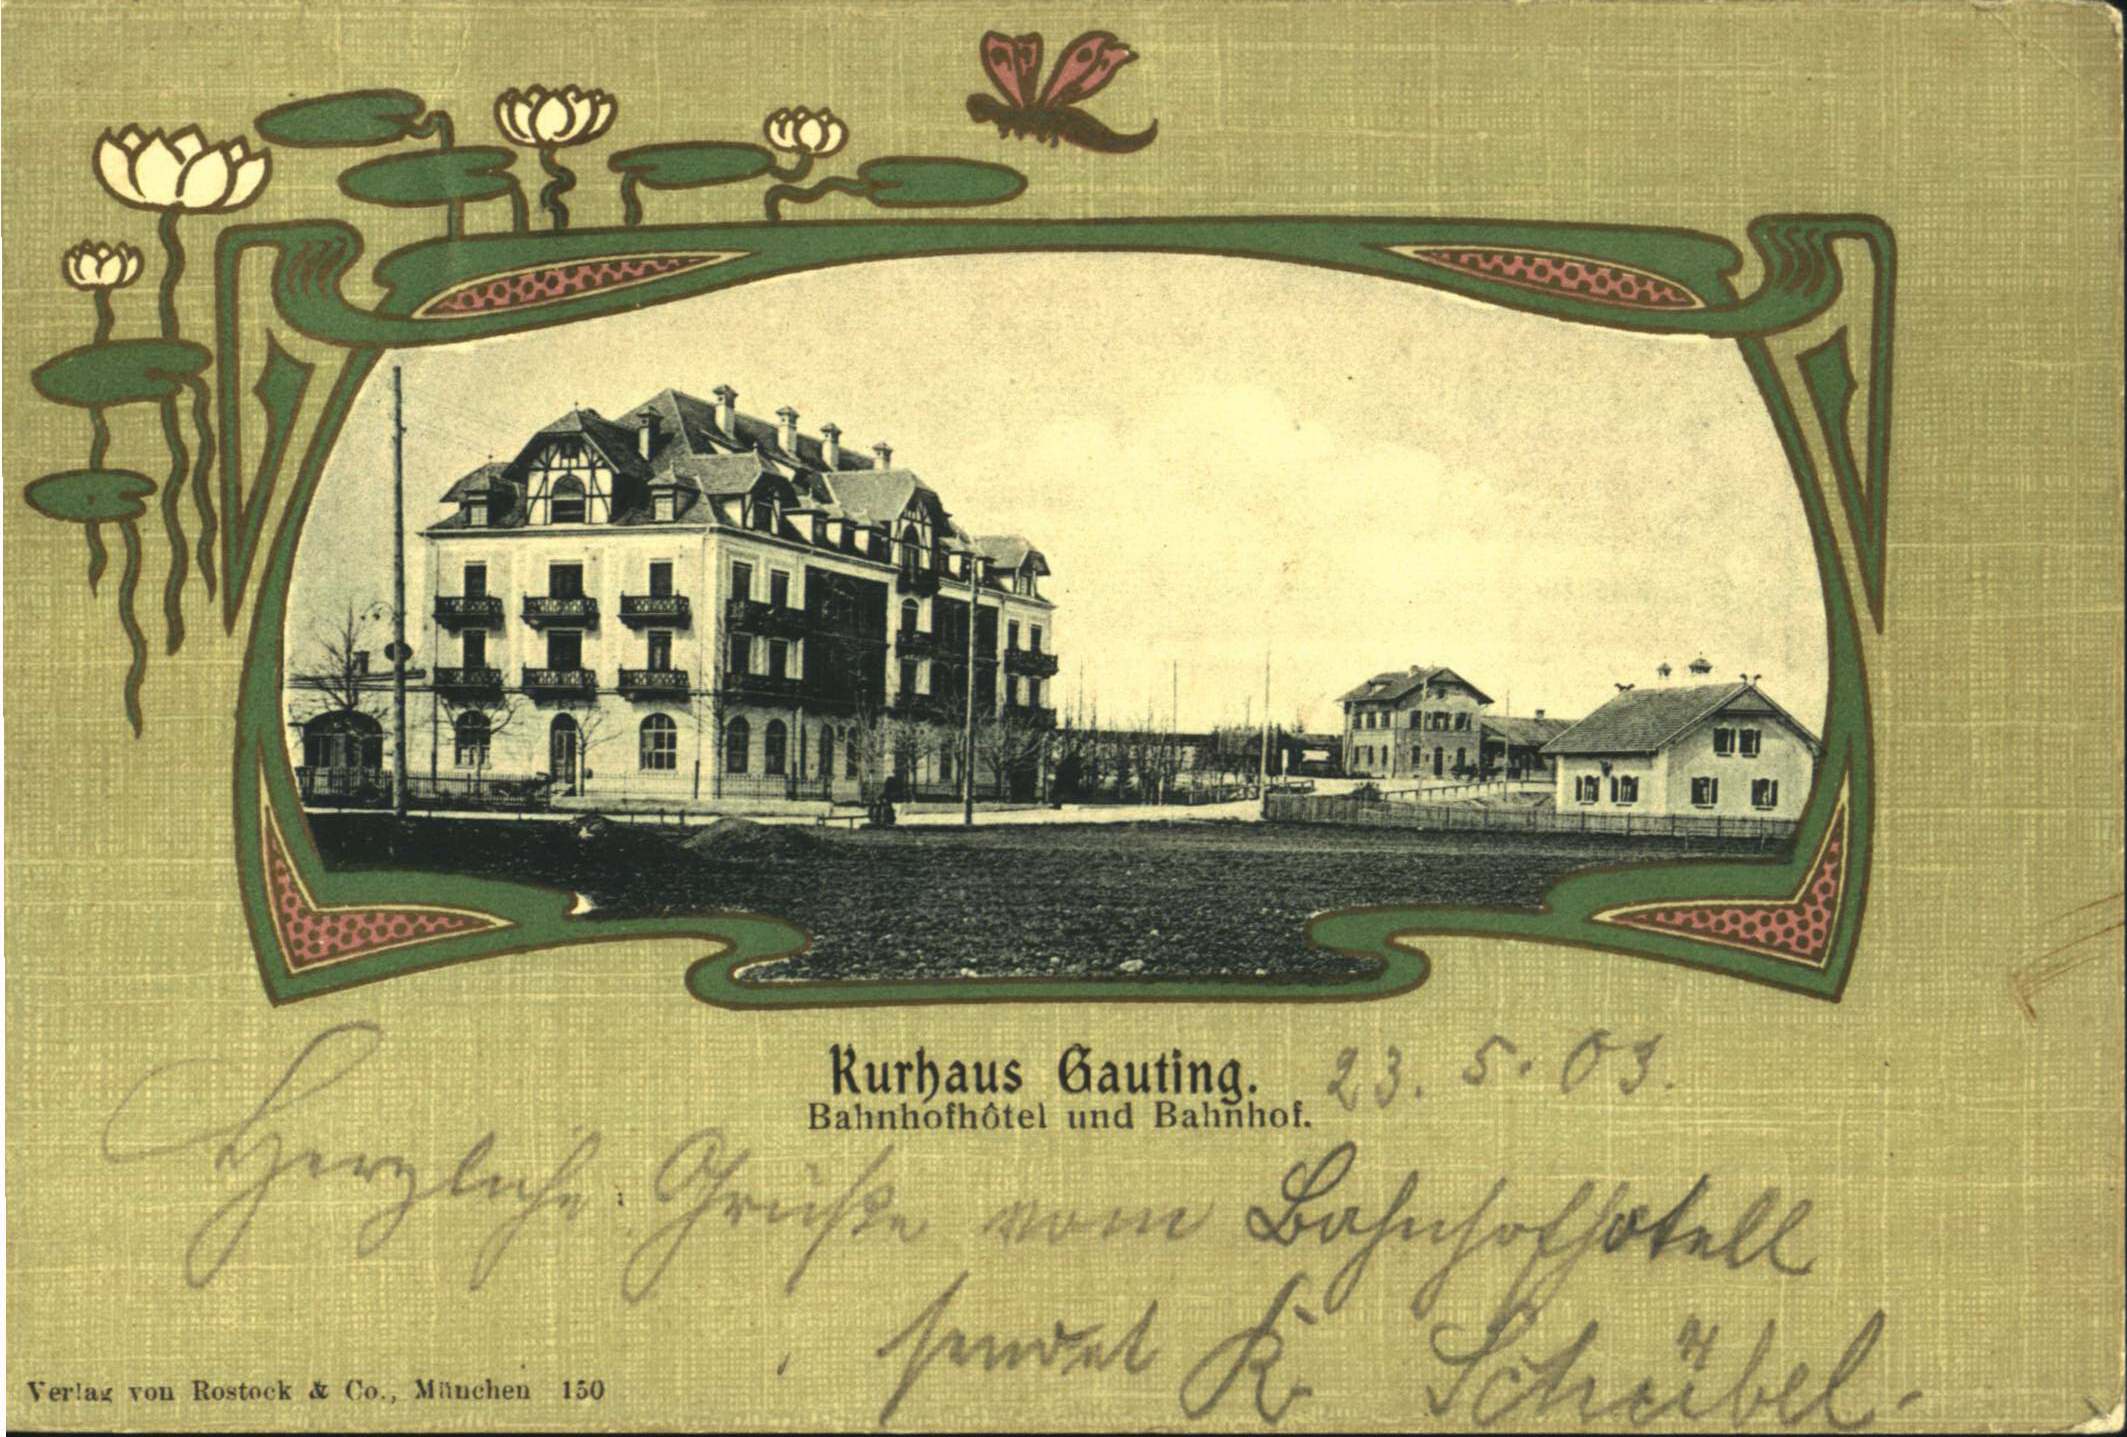 Kurhaus Gauting. 23. 5. 03.
Bahnhofhôtel und Bahnhof.
Herzliche Grüße vom Bahnhofhotell
sendet K. Schäbel.
Verlag von Rostock & Co., München 150